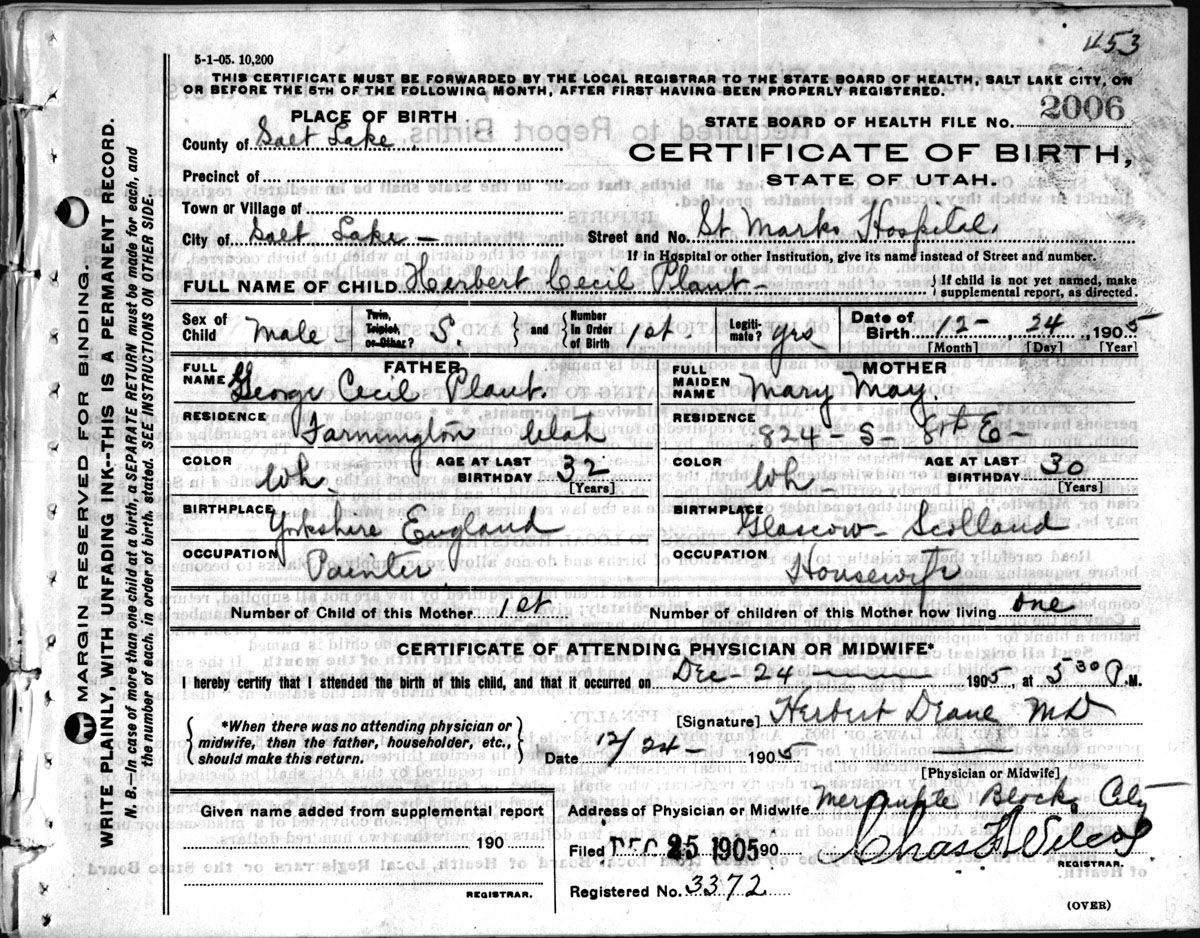 453
5-1-05. 10,200
THIS CERTIFICATE MUST BE FORWARDED BY THE LOCAL REGISTRAR TO THE STATE BOARD OF HEALTH, SALT LAKE CITY, ON
OR BEFORE THE 5TH OF THE FOLLOWING MONTH, AFTER FIRST HAVING BEEN PROPERLY REGISTERED.
PLACE OF BIRTH
STATE BOARD OF HEALTH FILE NO. 2006
County of Salt Lake
CERTIFICATE OF BIRTH,
Precinct of
STATE OF UTAH.
Town or Village of
City of Salt Lake — Street and No. St Marks Hospital.
If in Hospital or other Institution, give its name instead of Street and number.
FULL NAME OF CHILD Herbert Cecil Plant — } If child is not yet named, make
supplemental report, as directed.
Sex of Child Male Twin, Triplet, or Other? S. } and { Number in Order of Birth 1st Legiti-mate? yes Date of Birth 12 - 24, 1905
[Month] [Day] [Year]
FATHER
FULL NAME George Cecil Plant.
MOTHER
FULL MAIDEN NAME Mary May.
RESIDENCE Farmington Utah
RESIDENCE 824 - S - 8th E -
COLOR Wh. AGE AT LAST BIRTHDAY 32 [Years]
COLOR Wh - AGE AT LAST BIRTHDAY 30 [Years]
BIRTHPLACE Yorkshire England
BIRTHPLACE Glascow - Scotland
OCCUPATION Painter
OCCUPATION Housewife
Number of Child of this Mother 1st Number of children of this Mother now living one
CERTIFICATE OF ATTENDING PHYSICIAN OR MIDWIFE*
I hereby certify that I attended the birth of this child, and that it occurred on Dec - 24 — 1905, at 5 30 P.M.
{ *When there was no attending physician or
midwife, then the father, householder, etc.,
should make this return. }
[Signature] Herbert Deane MD
Date 12/24 - 1905
[Physician or Midwife]
Given name added from supplemental report
190
REGISTRAR.
Address of Physician or Midwife Mercantile Block City
Filed DEC 25 1905 90 Chas F Wilcox
REGISTRAR.
Registered No. 3372
(OVER)
MARGIN RESERVED FOR BINDING.
WRITE PLAINLY, WITH UNFADING INK--THIS IS A PERMANENT RECORD.
N. B.—In case of more than one child at a birth, a SEPARATE RETURN must be made for each, and
the number of each, in order of birth, stated. SEE INSTRUCTIONS ON OTHER SIDE.